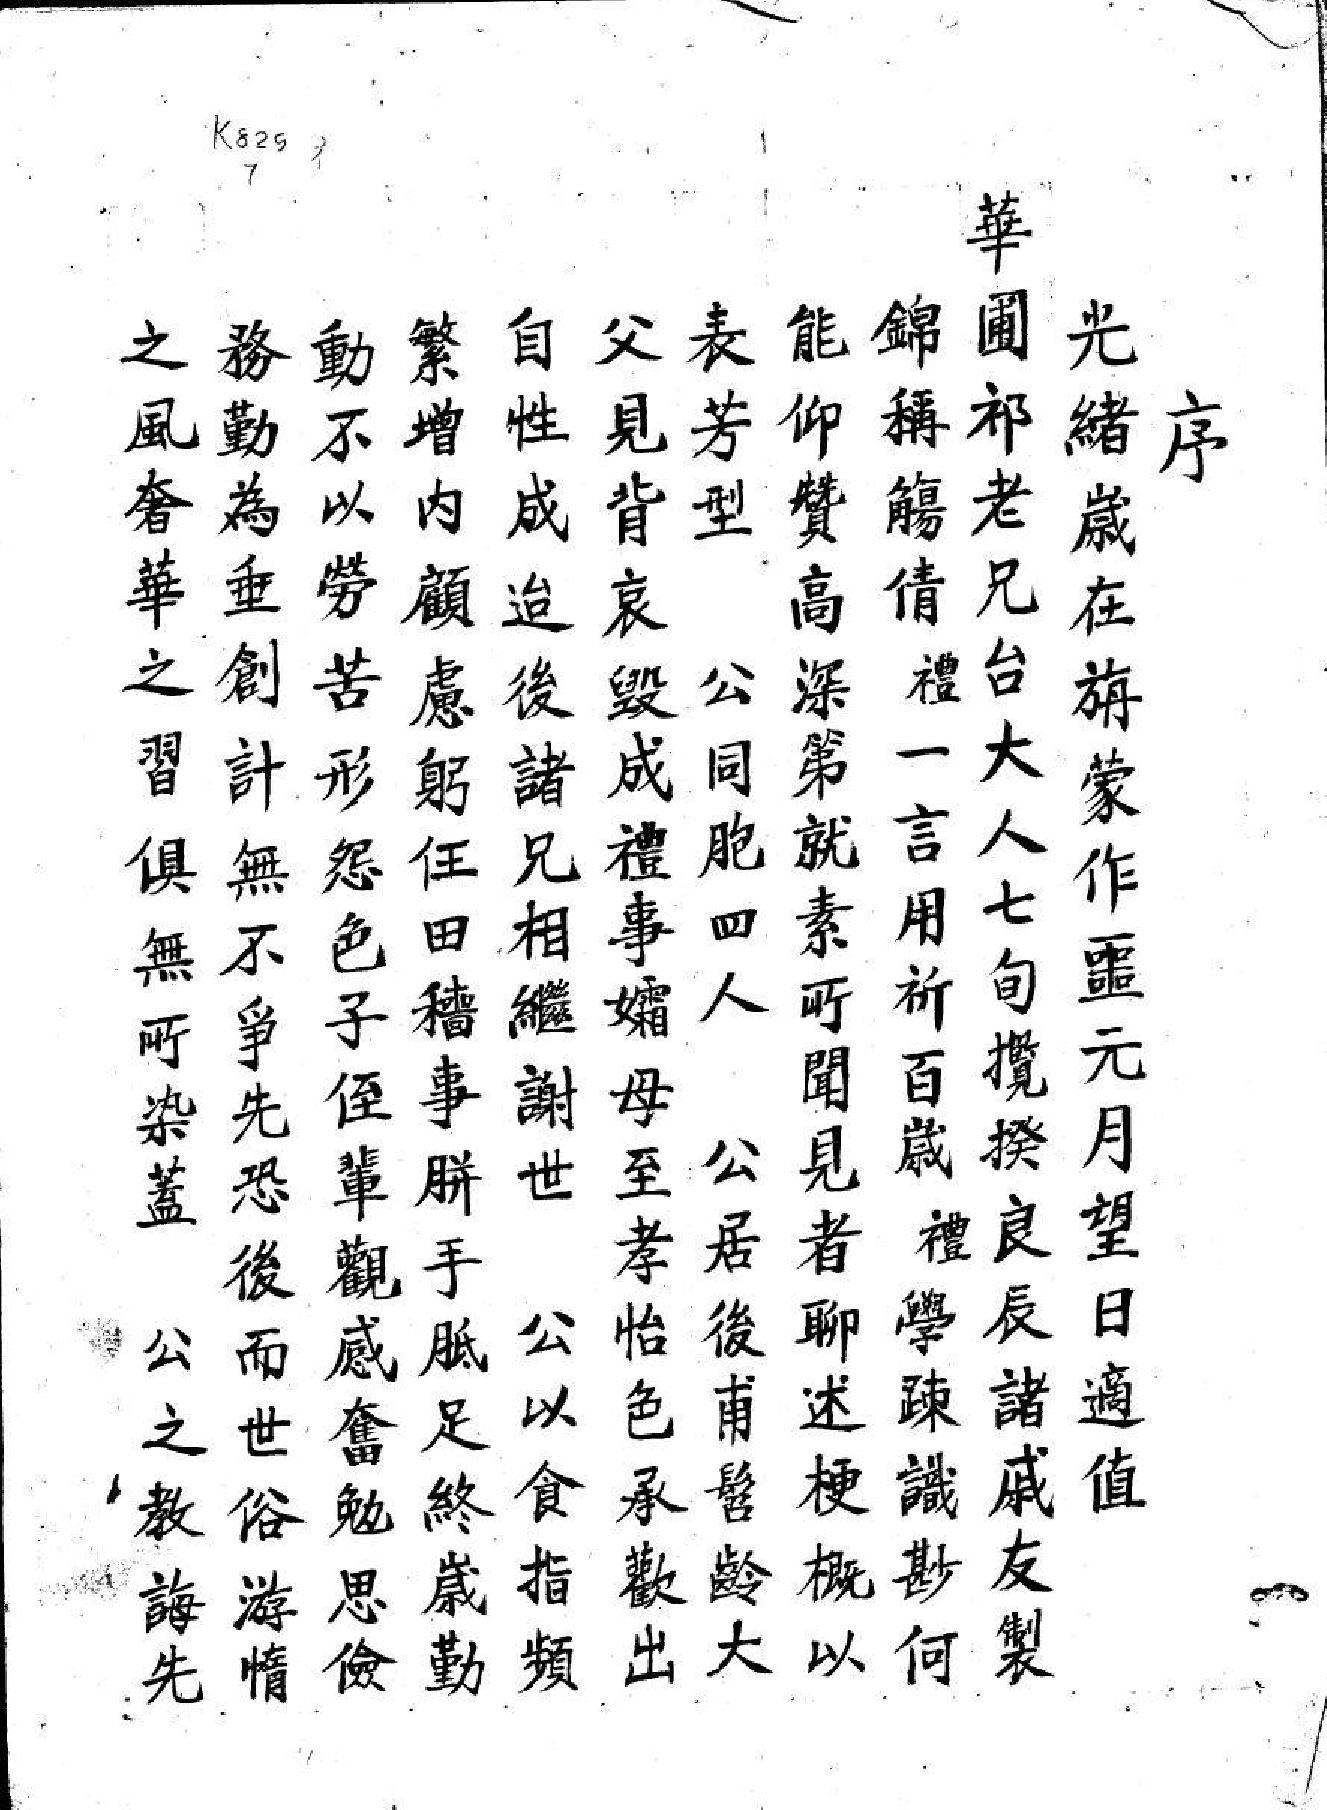 K825
7
序
光緒歲在旃蒙作噩元月望日適值
華圃祁老兄台大人七旬攬揆良辰諸戚友製
錦稱觴倩禮一言用祈百歲禮學疎識尠何
能仰贊高深第就素所聞見者聊述梗概以
表芳型　公同胞四人　公居後甫髫齡大
父見背哀毀成禮事孀母至孝怡色承歡出
自性成迨後諸兄相繼謝世　公以食指頻
繁增內顧慮躬任田穡事胼手胝足終歲勤
動不以勞苦形怨色子侄輩觀感奮勉思儉
務勤為垂創計無不爭先恐後而世俗游惰
之風奢華之習俱無所染蓋　公之教誨先